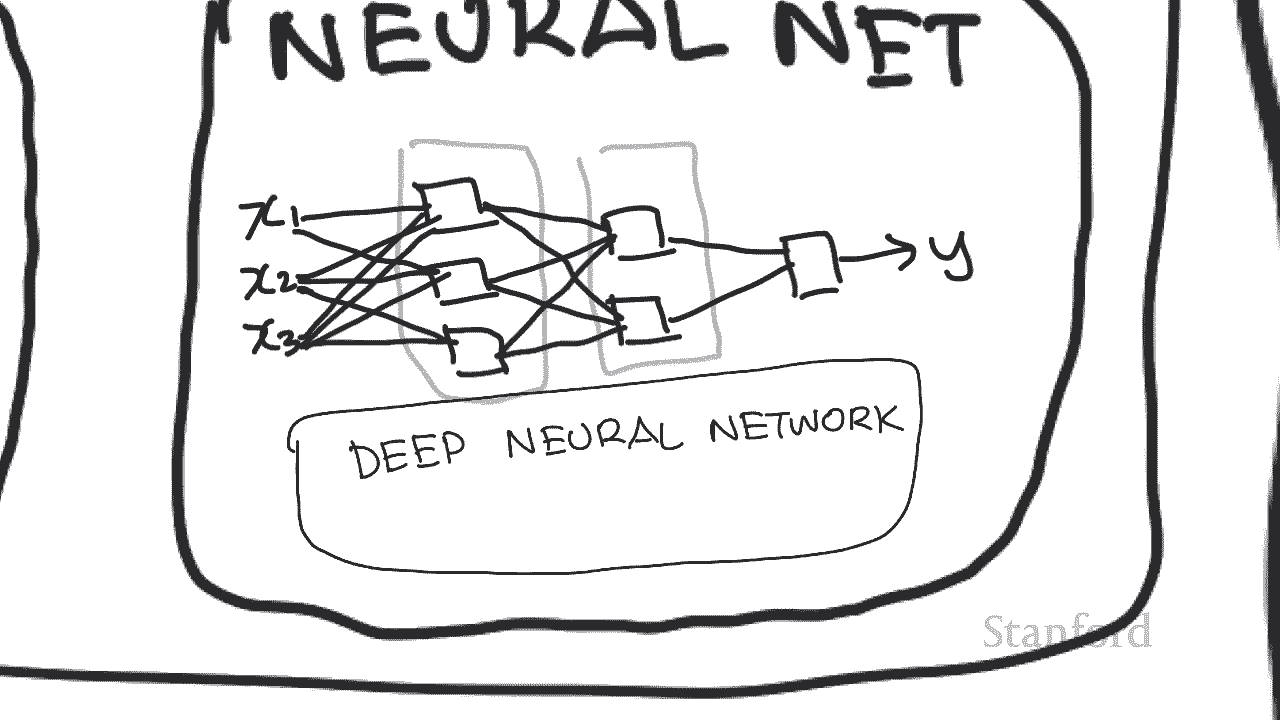 NEURAL NET
x1
x2
x3
y
DEEP NEURAL NETWORK
Stanford